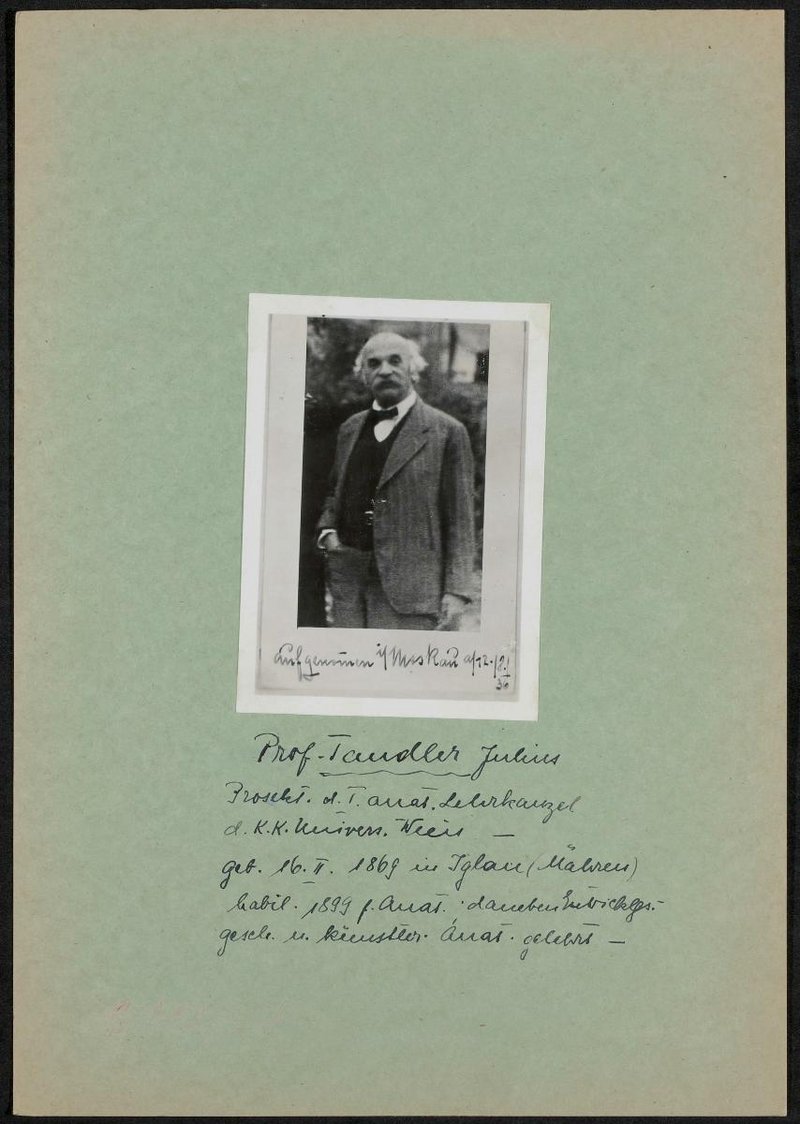 aufgenommen i/ Moskau a/12./8./36
Prof. Tandler Julius
Prosekt. d. I. anat. Lehrkanzel
d. K.K. Univers. Wien —
geb. 16. II. 1869 in Iglau (Mähren)
habil. 1899 f. Anat. daneben Entwicklgs.-
gesch. u. künstler. Anat. gelehrt —